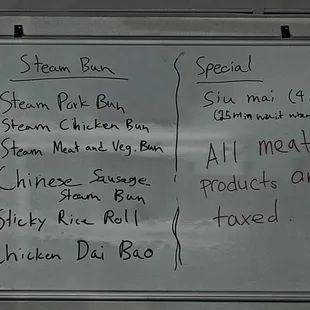 Steam Bun
Steam Pork Bun
Steam Chicken Bun
Steam Meat and Veg. Bun
Chinese Sausage
Steam Bun
Sticky Rice Roll
Chicken Dai Bao
Special
Siu mai (4
(25 min wait
All meat
products
taxed.